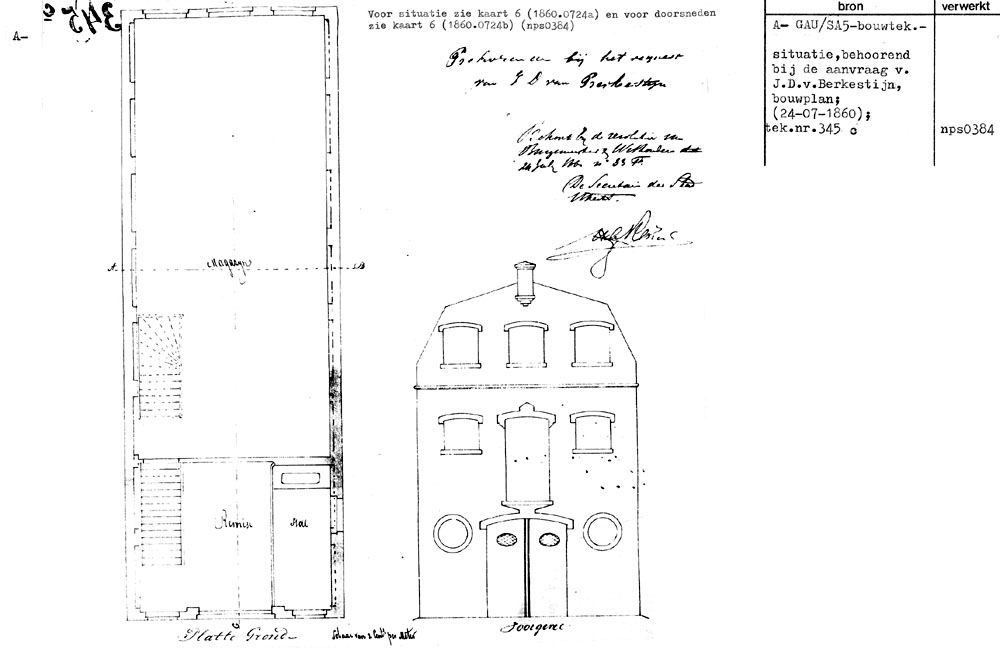 345 c
A-
Voor situatie zie kaart 6 (1860.0724a) en voor doorsneden
zie kaart 6 (1860.0724b) (nps0384)
bron
verwerkt
A- GAU/SA5-bouwtek.-
situatie,behoorend
bij de aanvraag v.
J.D.v.Berkestijn,
bouwplan;
(24-07-1860);
tek.nr.345 c
nps0384
bij het request
van J D van
de resolutie van
Burgemeester & Wethouders
De Secretaris der Stad
Utrecht.
A.
Magazijn
B
Remise
Stal
Platte Grond
Schaal van 2 Cent per Meter
Voorgevel